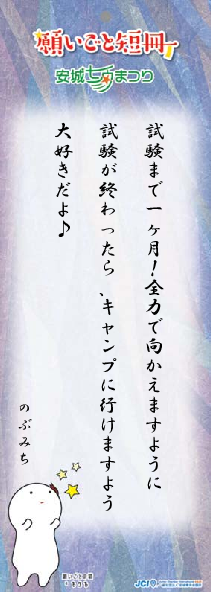 願いごと短冊
安城七夕まつり
試験まで一ヶ月！全力で向かえますように
試験が終わったら、キャンプに行けますよう
大好きだよ♪
のぶみち
願いごとの国
JCI